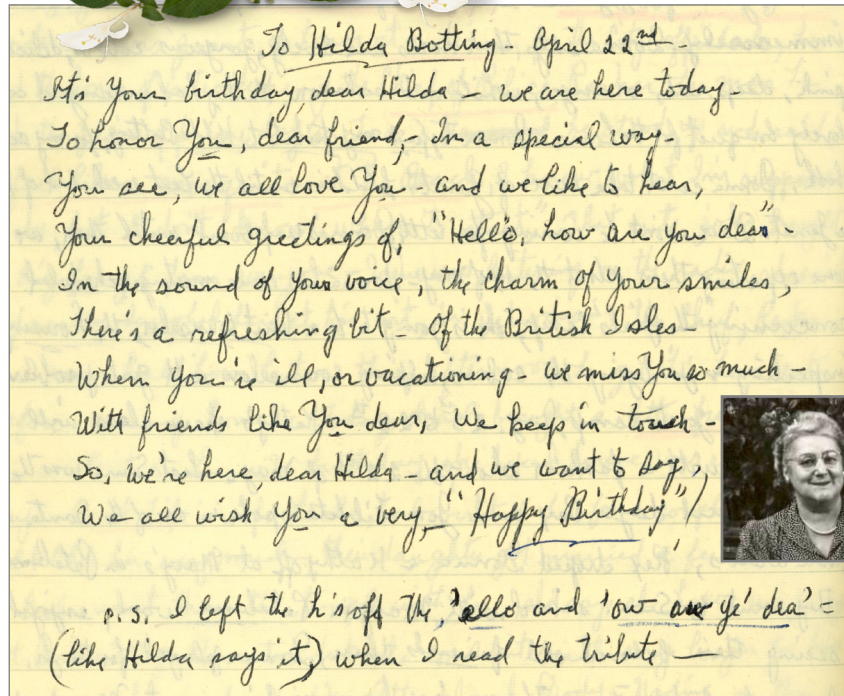 To Hilda Botting - April 22nd -
It's Your birthday, dear Hilda - we are here today -
To honor You, dear friend, - In a special way -
You see, we all love You - and we like to hear,
Your cheerful greetings of, "Hello, how are you dear" -
In the sound of your voice, the charm of your smiles,
There's a refreshing bit - Of the British Isles -
When you're ill, or vacationing - we miss You so much -
With friends like You dear, We keep in touch -
So, we're here, dear Hilda - and we want to say,
We all wish You a very, "Happy Birthday"!
p.s. I left the h's off the, 'ello and 'ow are ye' dea' =
(like Hilda says it,) when I read the tribute -